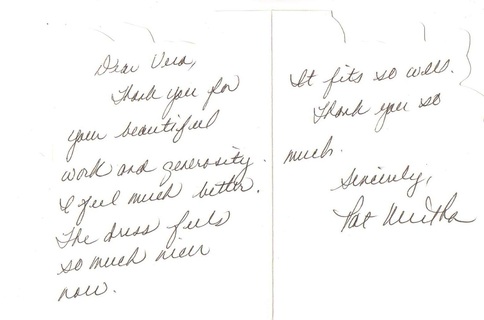 Dear Vera,
Thank you for
your beautiful
work and generosity.
I feel much better.
The dress feels
so much nicer
now.
It fits so well.
Thank you so
much.
Sincerely,
Pat